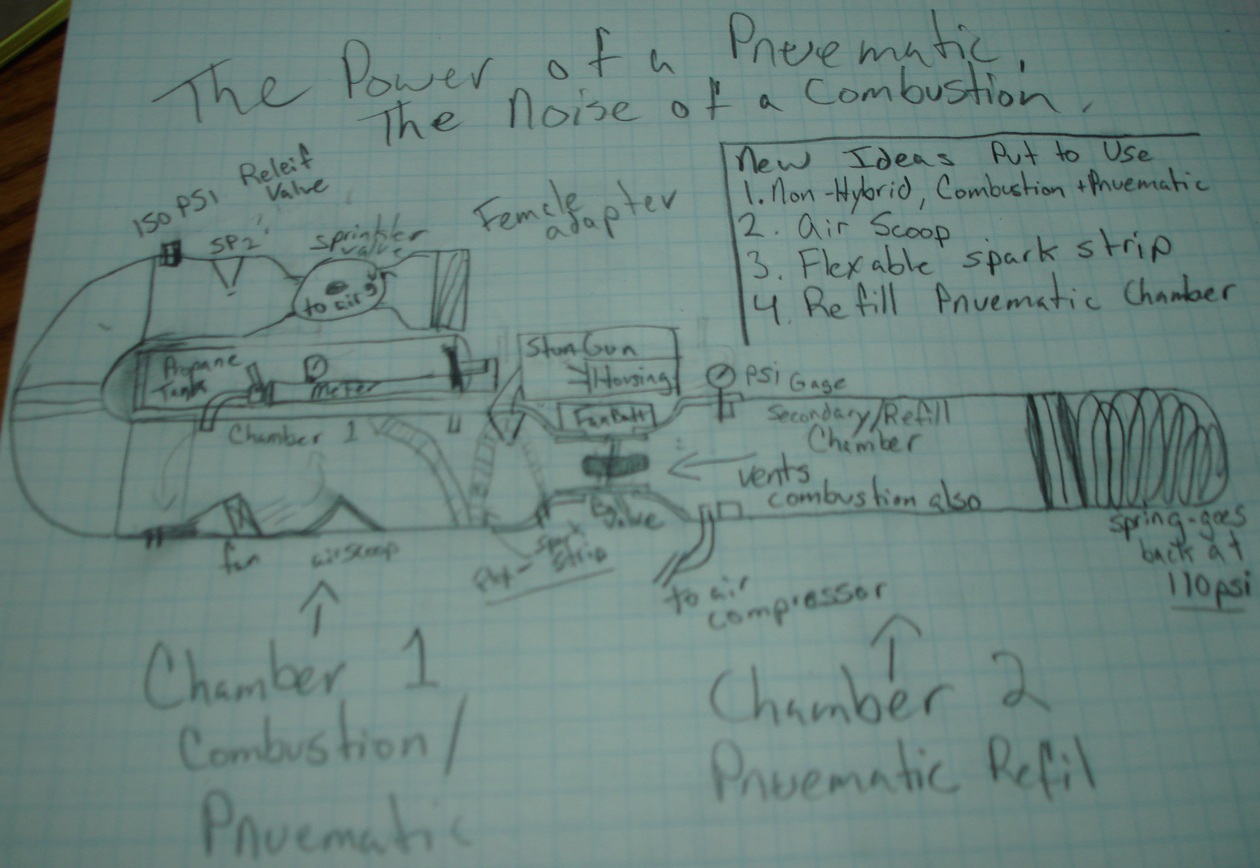 The Power of a Pnuematic,
The Noise of a Combustion,
New Ideas Put to Use
1. Non-Hybrid, Combustion + Pnuematic
2. Air Scoop
3. Flexable spark strip
4. Refill Pnuematic Chamber
150 PSI
Releif
Valve
SP2
sprinkler
valve
to air
Female
adapter
Propane
Tank
Meter
Stun Gun
Housing
PSI Gage
Fan Batt
Secondary/Refill
Chamber
Chamber 1
vents
combustion also
Valve
fan
air scoop
spark
strip
to air
compressor
spring-goes
back at
110psi
Chamber 1
Combustion/
Pnuematic
Chamber 2
Pnuematic Refil